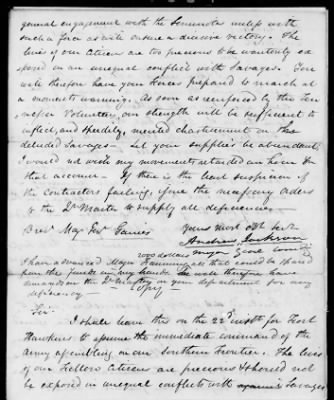 general engagement with the Seminoles unless with
such a force as will ensure a decisive victory. The
lives of our Citizens are too precious to be wantonly ex
posed in an unequal conflict with Savages. You
will therefore have your forces prepared to march at
a moments warning. As soon as reenforced by the Ten
nessee Volunteers, our strength will be sufficient to
inflict, and speedily, merited chastisement on these
deluded Savages — Let your supplies be abundant
I would not wish my movements retarded an hour on
that account — If there is the least suspicion of
the Contractors failing, give the necessary orders
to the Qr Master to supply all deficiencies —
Yours most obt Servt
Brevt Maj Genl Gaines
Andrew Jackson
Major Genl Comdg
2000 dollars
I have advanced Major Fanning, all that could be spared
from the funds in my hands. You will therefore have
demands on the Qr Mastery in your department for any
deficiency
Copy
Sir.
I shall leave this on the 22d inst for Fort
Hawkins to assume the immediate command of the
Army assembling on our Southern Frontier. The lives
of our Fellow Citizens are precious & should not
be exposed in unequal conflicts with Savages